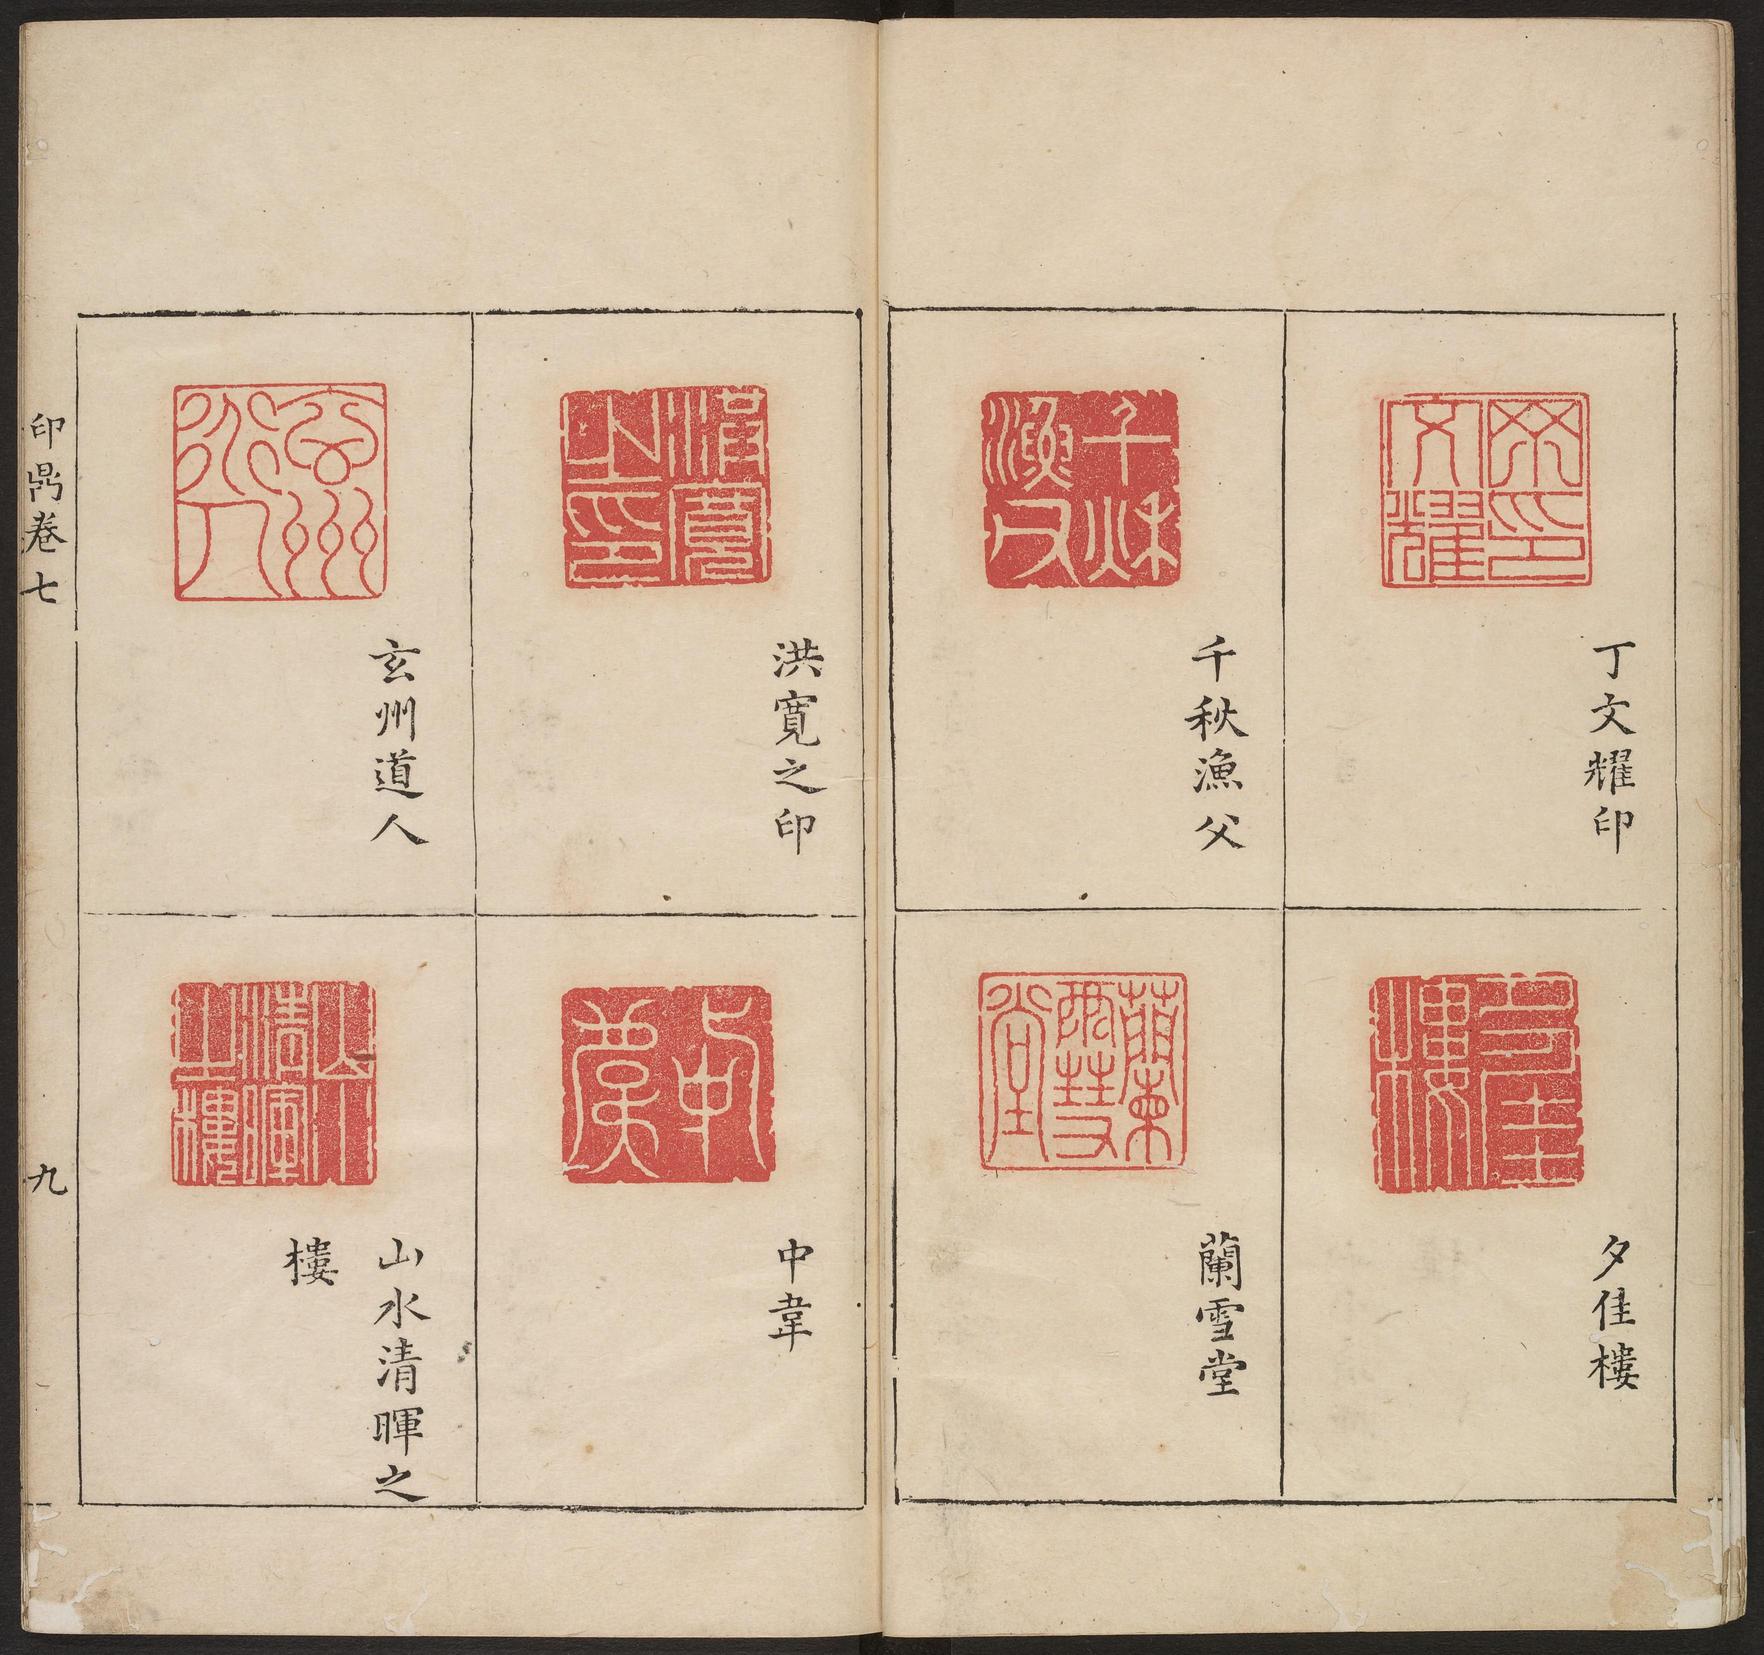 丁文耀印
夕佳樓
千秋漁父
蘭雪堂
洪寬之印
中韋
玄州道人
山水清暉之
樓
印鼎卷七
九